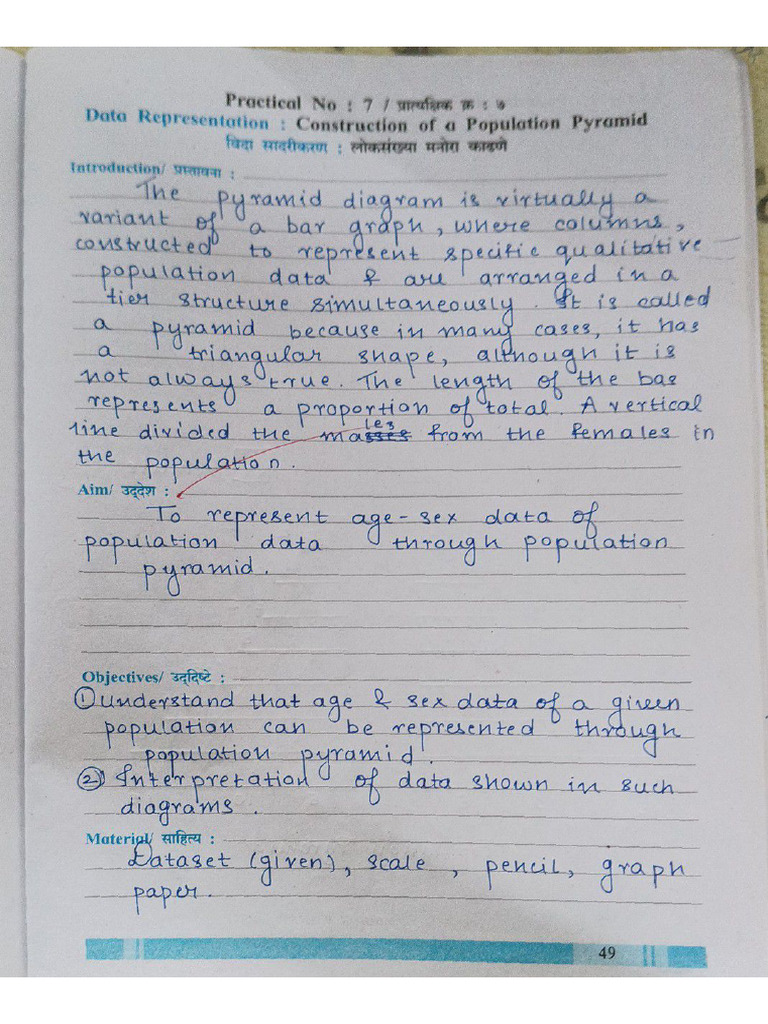 Practical No : 7 / प्रात्यक्षिक क्र : ७
Data Representation : Construction of a Population Pyramid
विदा सादरीकरण : लोकसंख्या मनोरा काढणे
Introduction/ प्रस्तावना :
The pyramid diagram is virtually a
variant of a bar graph, where columns,
constructed to represent specific qualitative
population data & are arranged in a
tier structure simultaneously. It is called
a pyramid because in many cases, it has
a triangular shape, although it is
not always true. The length of the bar
represents a proportion of total. A vertical
line divided the males from the females in
the population.
Aim/ उद्देश :
To represent age-sex data of
population data through population
pyramid.
Objectives/ उद्दिष्टे :
① Understand that age & sex data of a given
population can be represented through
population pyramid.
② Interpretation of data shown in such
diagrams.
Material/ साहित्य :
Dataset (given), scale, pencil, graph
paper.
49